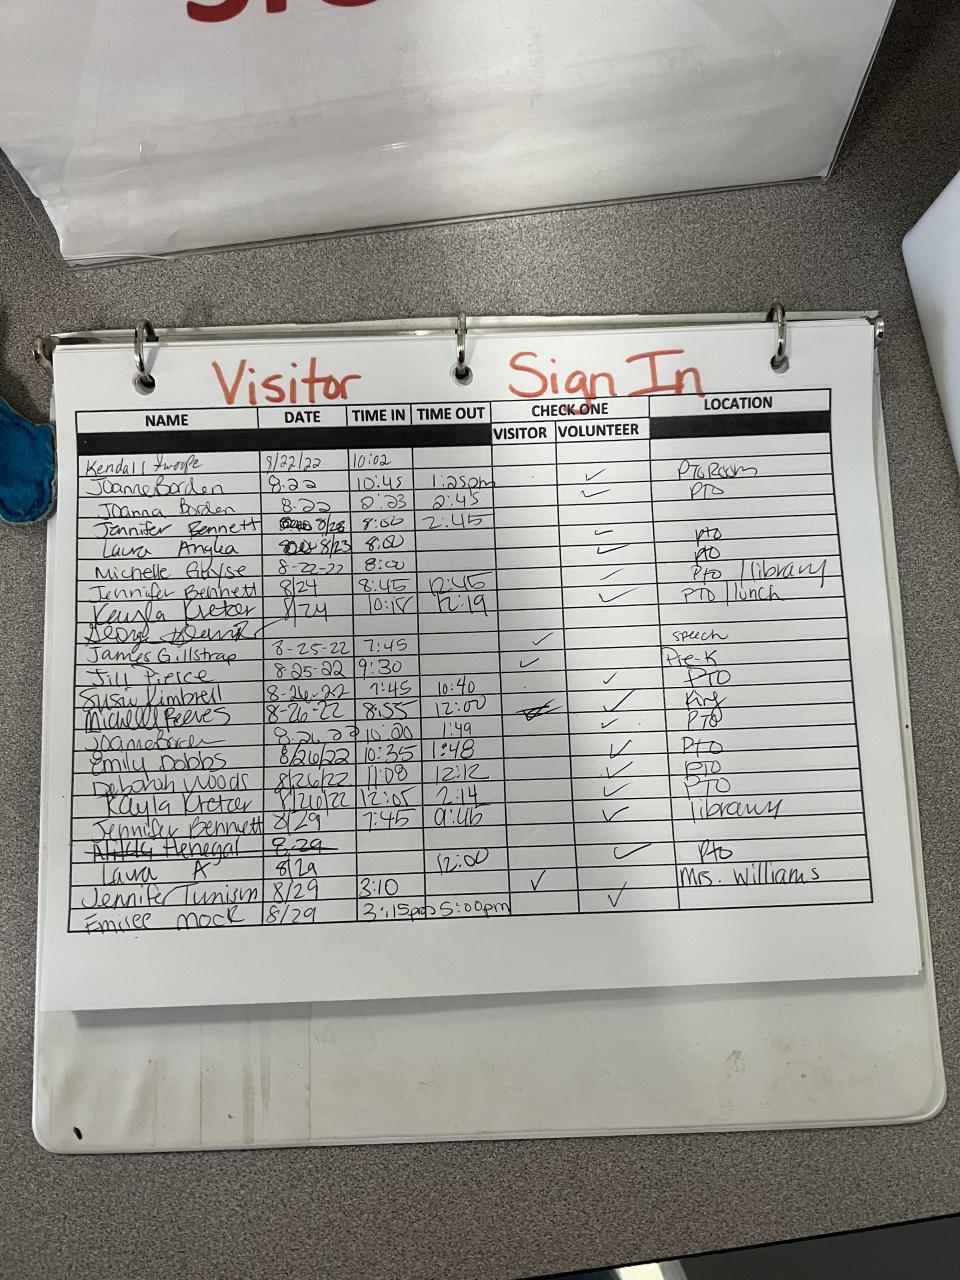 Visitor Sign In
NAME DATE TIME IN TIME OUT CHECK ONE LOCATION
VISITOR VOLUNTEER
Kendall 8/22/22 10:02
Joanne Borden 8.22 10:45 1:25pm ✓ PTO Room
Joanna Borden 8.22 2:23 2:45 ✓ PTO
Jennifer Bennett 8/23 8:00 2:45
Laura Anglea 8/23 8:00 ✓ pto
Michelle 8-22-22 8:00 ✓ pto
Jennifer Bennett 8/24 8:45 12:45 ✓ PTO | library
Kayla Kretzer 8/24 10:18 12:19 ✓ PTO | lunch
George
James Gillstrap 8-25-22 7:45 ✓ speech
Jill Pierce 8-25-22 9:30 ✓ Pre-K
Susie Kimbrell 8-26-22 7:45 10:40 ✓ PTO
Michelle Reeves 8-26-22 8:55 12:00 ✓
Joanne Borden 8.26.22 10:20 1:49 ✓ PTO
Emily Dobbs 8/26/22 10:35 1:48 ✓ PTO
Deborah Woods 8/26/22 11:08 12:12 ✓ PTO
Kayla Kretzer 8/26/22 12:05 2:14 ✓ PTO
Jennifer Bennett 8/29 7:45 9:46 ✓ library
Henegal 8.29
Laura A 8/29 12:00 ✓ Pto
Jennifer 8/29 3:10 ✓ Mrs. Williams
Emilee Mock 8/29 3:15pm 5:00pm ✓